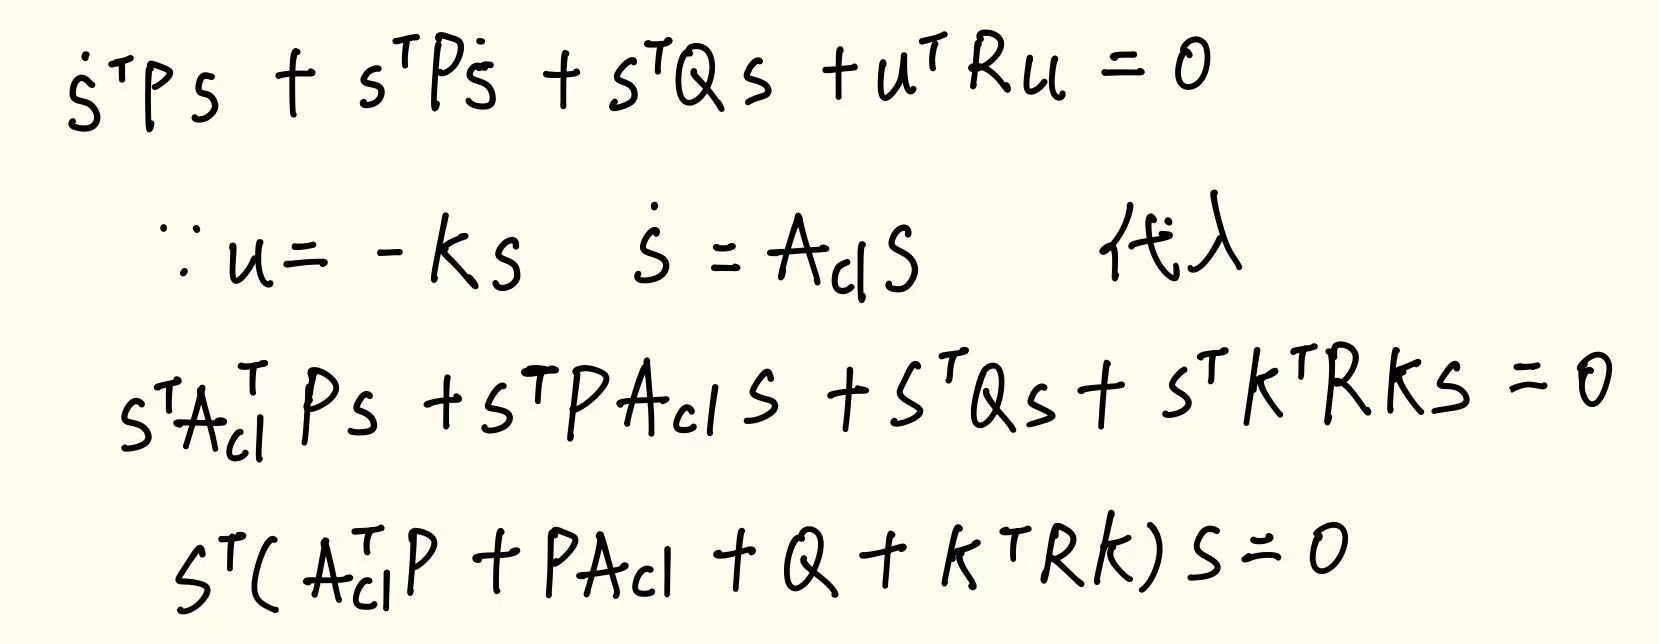 ṡᵀPs + sᵀPṡ + sᵀQs + uᵀRu = 0
∵ u = -Ks ṡ = A_cl s 代入
sᵀA_clᵀPs + sᵀPA_cl s + sᵀQs + sᵀKᵀRKs = 0
sᵀ(A_clᵀP + PA_cl + Q + KᵀRK)s = 0